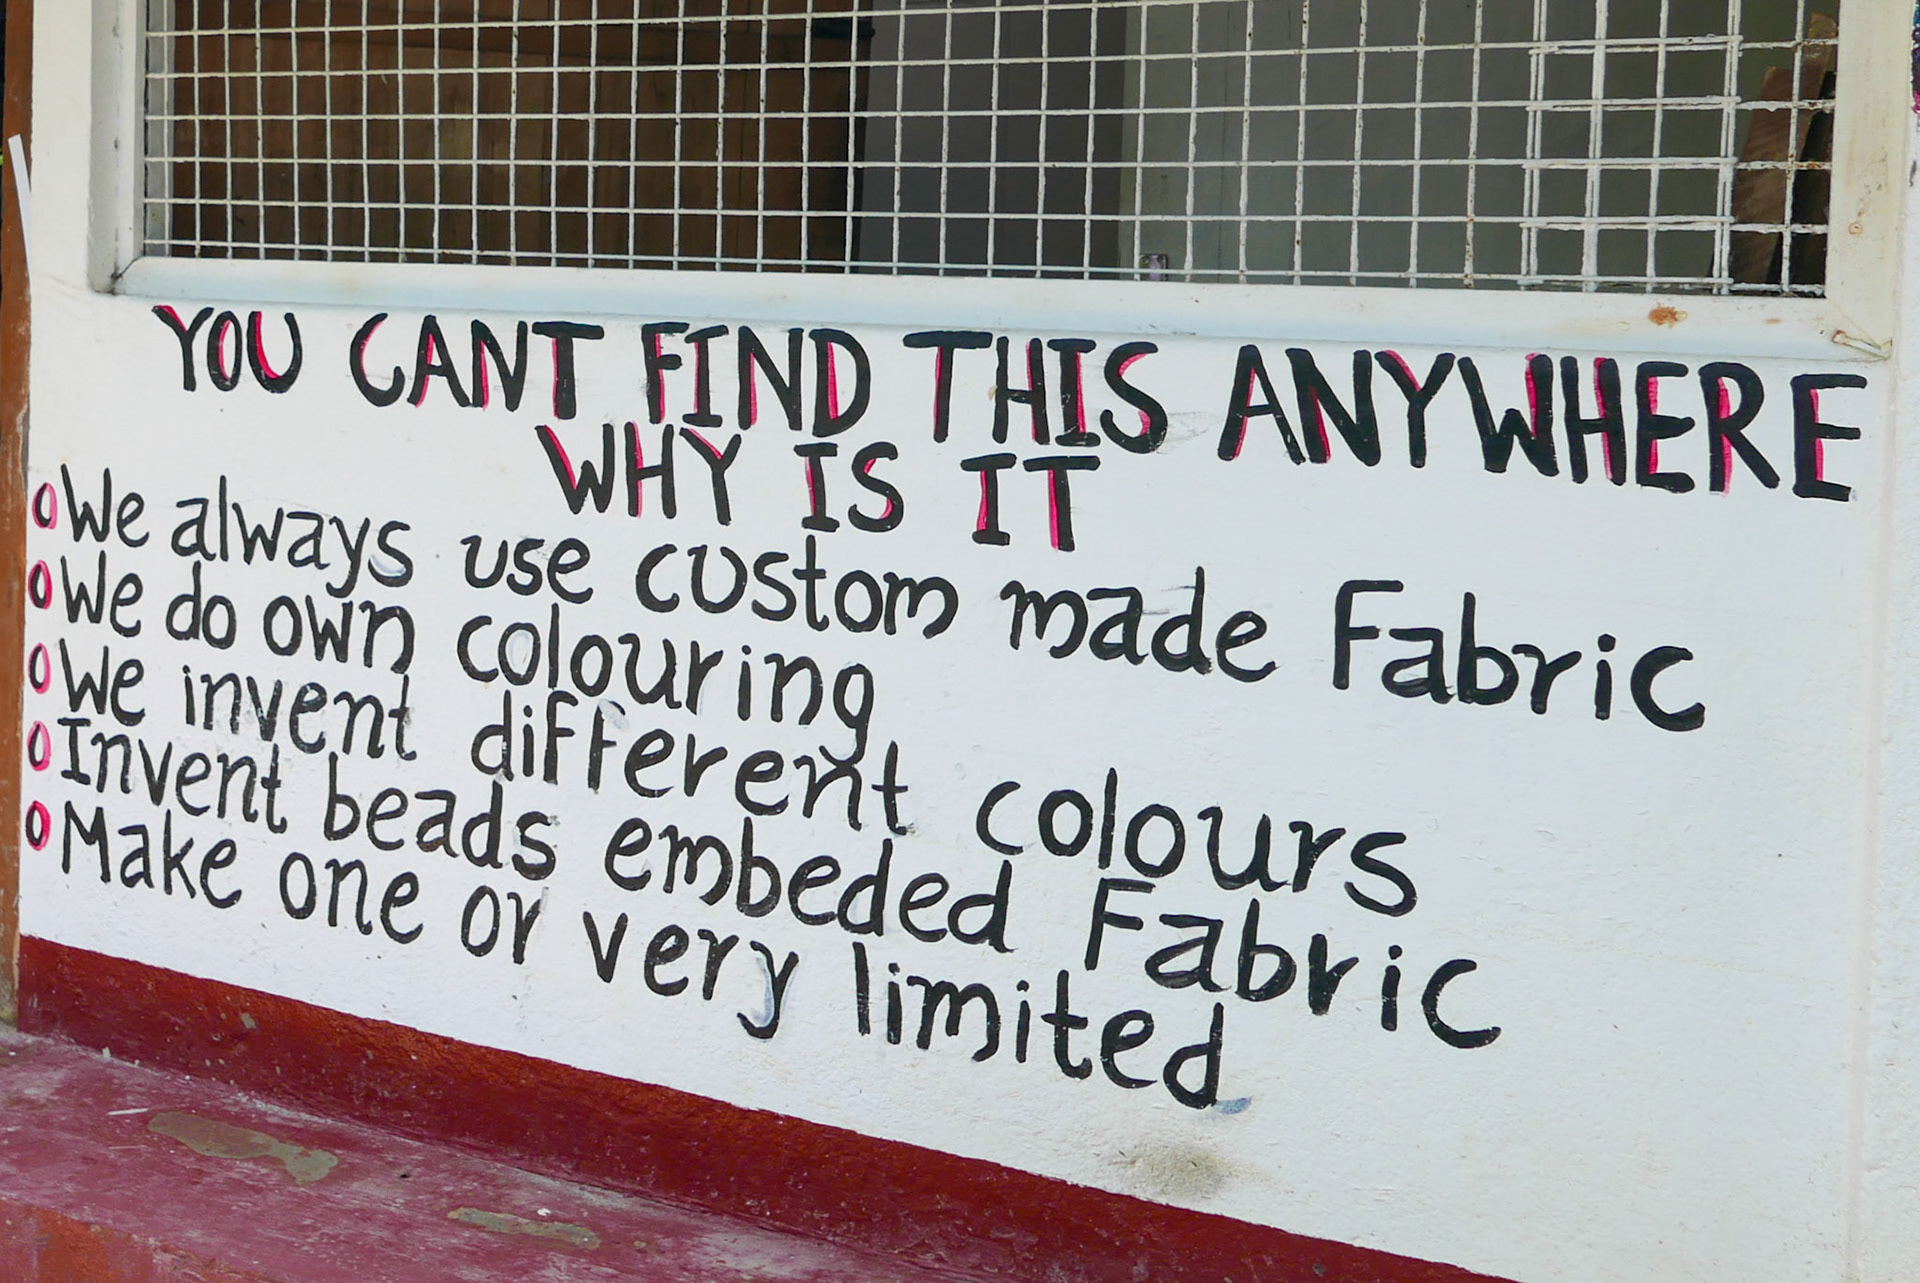 YOU CANT FIND THIS ANYWHERE
WHY IS IT
We always use custom made Fabric
We do own colouring
We invent different colours
Invent beads embeded Fabric
Make one or very limited